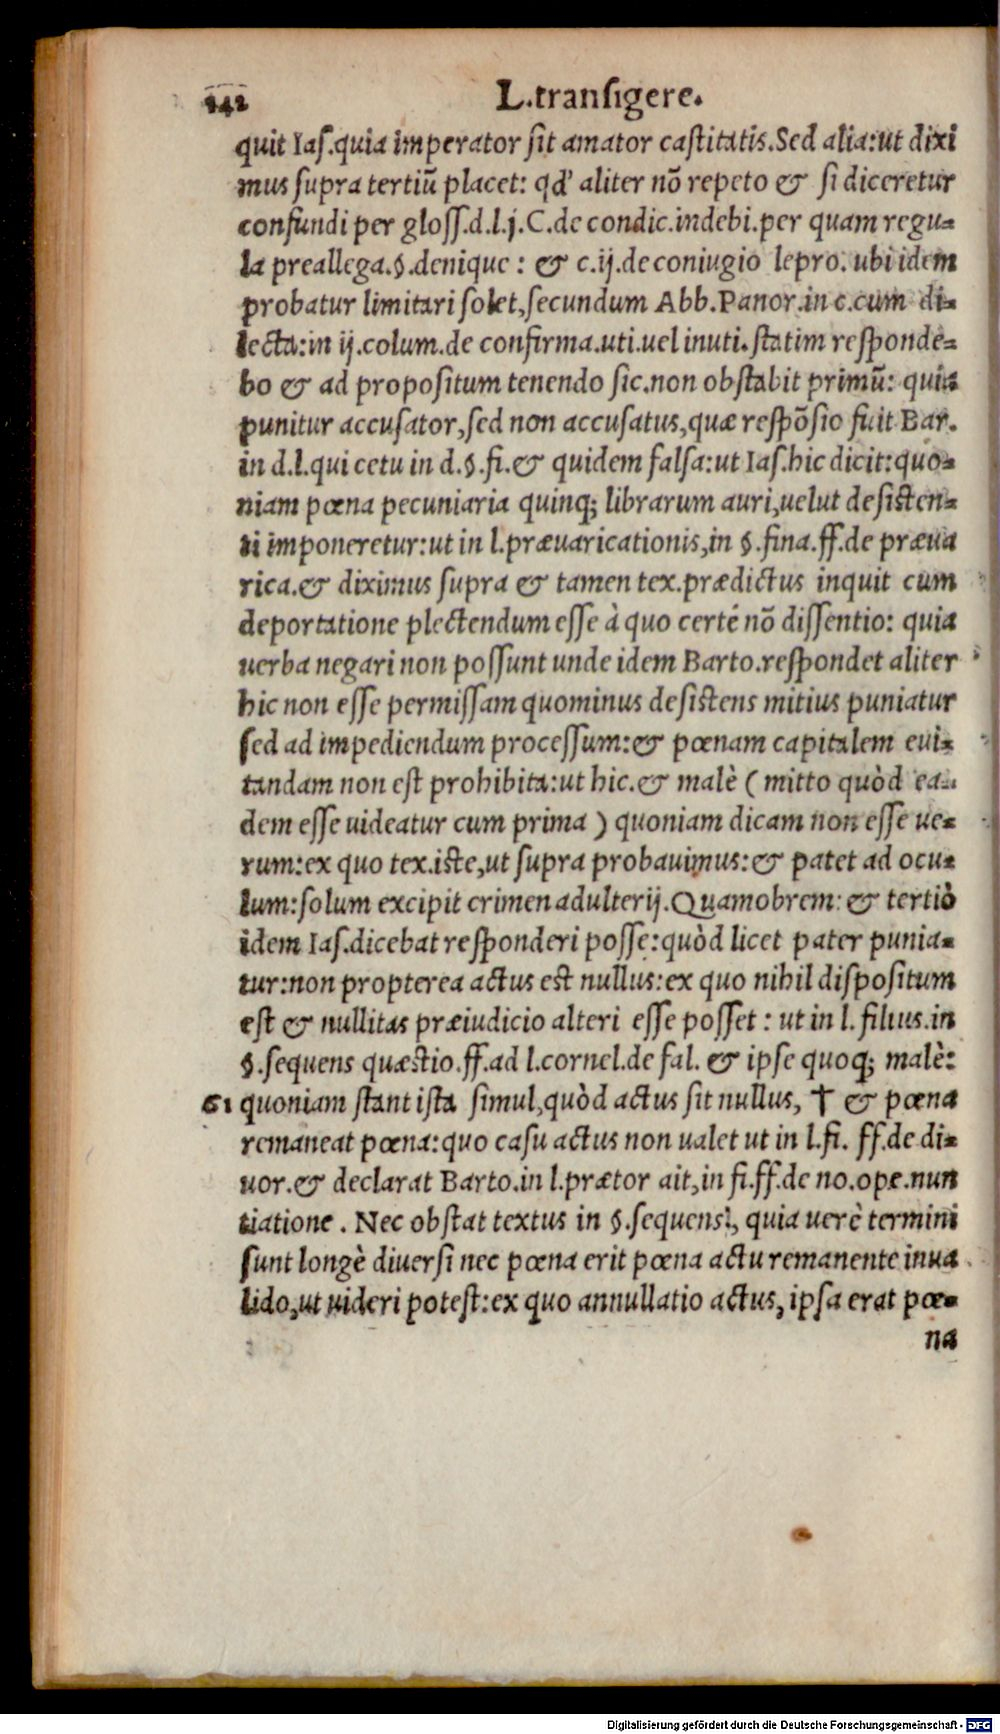 142 L.transigere.
quit Ias.quia imperator sit amator castitatis.Sed alia:ut dixi
mus supra tertiū placet: qd' aliter nō repeto & si diceretur
confundi per gloss.d.l.j.C.de condic.indebi.per quam regu=
la preallega.§.denique : & c.ij.de coniugio lepro. ubi idem
probatur limitari solet,secundum Abb.Panor.in c.cum di=
lecta:in ij.colum.de confirma.uti.uel inuti.statim responde=
bo & ad propositum tenendo sic.non obstabit primū: quia
punitur accusator,sed non accusatus,quæ respōsio fuit Bar.
in d.l.qui cetu in d.§.fi.& quidem falsa:ut Ias.hic dicit:quo=
niam pœna pecuniaria quinq; librarum auri,uelut desisten=
ti imponeretur:ut in l.præuaricationis,in §.fina.ff.de præua
rica.& diximus supra & tamen tex.prædictus inquit cum
deportatione plectendum esse à quo certé nō dissentio: quia
uerba negari non possunt unde idem Barto.respondet aliter
hic non esse permissam quominus desistens mitius puniatur
sed ad impediendum processum:& pœnam capitalem eui=
tandam non est prohibita:ut hic.& malè ( mitto quòd ea=
dem esse uideatur cum prima ) quoniam dicam non esse ue=
rum:ex quo tex.iste,ut supra probauimus:& patet ad ocu=
lum:solum excipit crimen adulterij.Quamobrem: & tertiò
idem Ias.dicebat responderi posse:quòd licet pater punia=
tur:non propterea actus est nullus:ex quo nihil dispositum
est & nullitas præiudicio alteri esse posset : ut in l. filius.in
§.sequens quæstio.ff.ad l.cornel.de fal. & ipse quoq; malè:
61 quoniam stant ista simul,quòd actus sit nullus, † & pœna
remaneat pœna:quo casu actus non ualet ut in l.fi. ff.de di=
uor.& declarat Barto.in l.prætor ait,in fi.ff.de no.ope.nun
tiatione . Nec obstat textus in §.sequens:, quia uerè termini
sunt longè diuersi nec pœna erit pœna actu remanente inua
lido,ut uideri potest:ex quo annullatio actus, ipsa erat pœ=
na
Digitalisierung gefördert durch die Deutsche Forschungsgemeinschaft - DFG